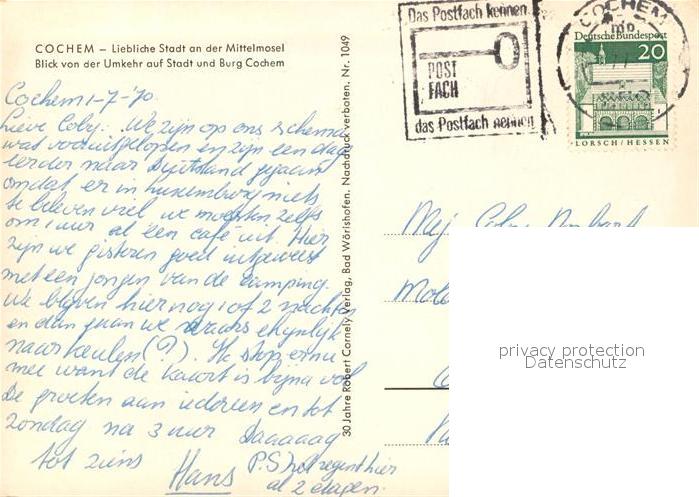 COCHEM – Liebliche Stadt an der Mittelmosel
Blick von der Umkehr auf Stadt und Burg Cochem
Das Postfach kennen
POST
FACH
das Postfach nennen
COCHEM
Deutsche Bundespost
20
LORSCH / HESSEN
Cochem 1-7-'70.
Lieve Coby. We zijn op ons schema
wat vooruitgelopen en zijn een dag
eerder naar Duitsland gegaan
omdat er in Luxemburg niets
te beleven viel we moesten zelfs
om 1 uur al een café uit. Hier
zijn we gisteren goed uitgeweest
met een jongen van de camping.
We blijven hier nog 1 of 2 nachten
en dan gaan we waarschijnlijk
naar Keulen (?). Ik stop ermee
mee want de kaart is bijna vol
De groeten aan iedereen en tot
zondag na 3 uur Daaaaag
tot ziens
Hans
P.S) het regent hier
al 2 dagen.
30 Jahre Robert Cornely Verlag, Bad Wörishofen. Nachdruck verboten. Nr. 1049
Mej. Coby
privacy protection
Datenschutz